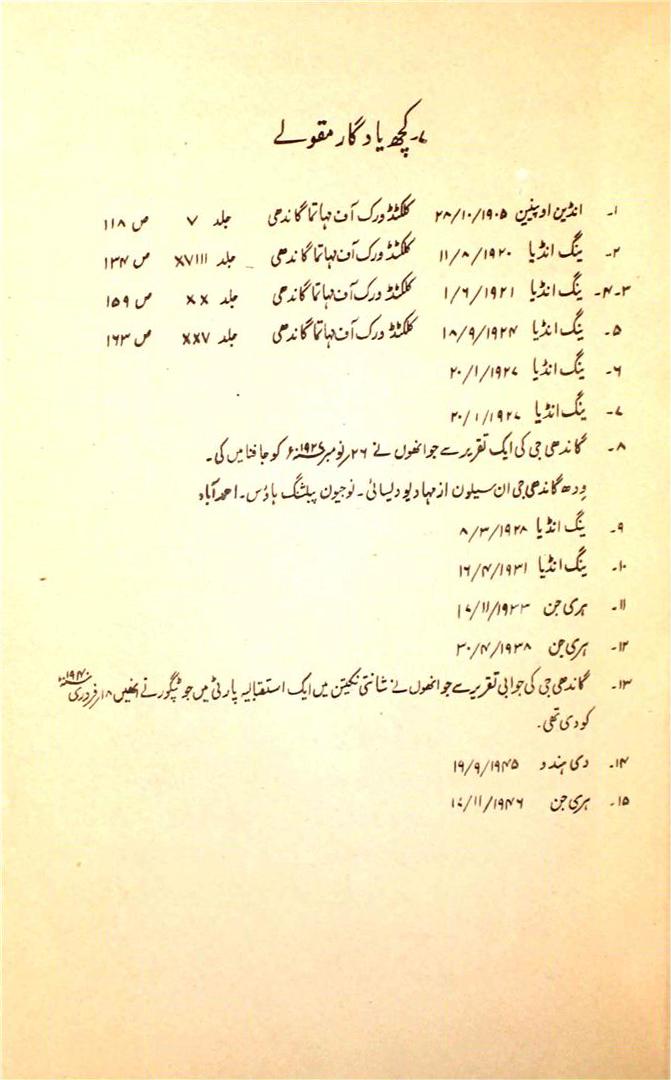 ۷۔ کچھ یادگار مقولے
۱۔ انڈین اوپینین ۲۸/۱۰/۱۹۰۵ کلکٹڈ ورک آف مہاتما گاندھی جلد V ص ۱۱۸
۲۔ ینگ انڈیا ۱۱/۸/۱۹۲۰ کلکٹڈ ورک آف مہاتما گاندھی جلد XVIII ص ۱۳۴
۳۔۴۔ ینگ انڈیا ۱/۶/۱۹۲۱ کلکٹڈ ورک آف مہاتما گاندھی جلد XX ص ۱۵۹
۵۔ ینگ انڈیا ۱۸/۹/۱۹۲۴ کلکٹڈ ورک آف مہاتما گاندھی جلد XXV ص ۱۶۳
۶۔ ینگ انڈیا ۲۰/۱/۱۹۲۷
۷۔ ینگ انڈیا ۲۰/۱/۱۹۲۷
۸۔ گاندھی جی کی ایک تقریر سے جو انھوں نے ۲۶؍نومبر ۱۹۲۷ء کو جافنا میں کی۔
وِدھ گاندھی جی ان سیلون از مہادیو دیسائی۔ نوجیون پبلشنگ ہاؤس۔ احمدآباد
۹۔ ینگ انڈیا ۸/۳/۱۹۲۸
۱۰۔ ینگ انڈیا ۱۶/۴/۱۹۳۱
۱۱۔ ہری جن ۱۷/۱۱/۱۹۳۳
۱۲۔ ہری جن ۳۰/۴/۱۹۳۸
۱۳۔ گاندھی جی کی جوابی تقریر سے جو انھوں نے شانتی نکیتن میں ایک استقبالیہ پارٹی میں جو ٹیگور نے انھیں ۱۸؍فروری ۱۹۴۰ء
کو دی تھی۔
۱۴۔ دی ہندو ۱۹/۹/۱۹۴۵
۱۵۔ ہری جن ۱۷/۱۱/۱۹۴۶